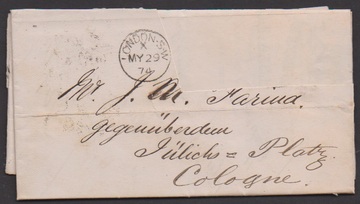 LONDON.S.W
X
MY 29
74
Mr. J. M. Farina.
gegenüberdem
Jülichs = Platz
Cologne.